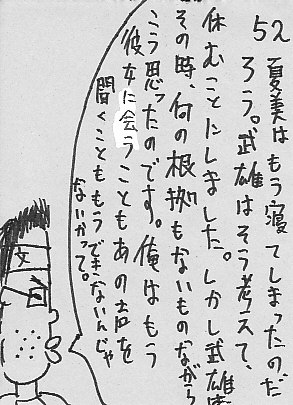 52
夏美はもう寝てしまったのだ
ろう。武雄はそう考えて、
休むことにしました。しかし武雄は
その時、何の根拠もないものながら
こう思ったのです。俺はもう
彼女に会うこともあの声を
聞くこともうできないんじゃ
ないかって。